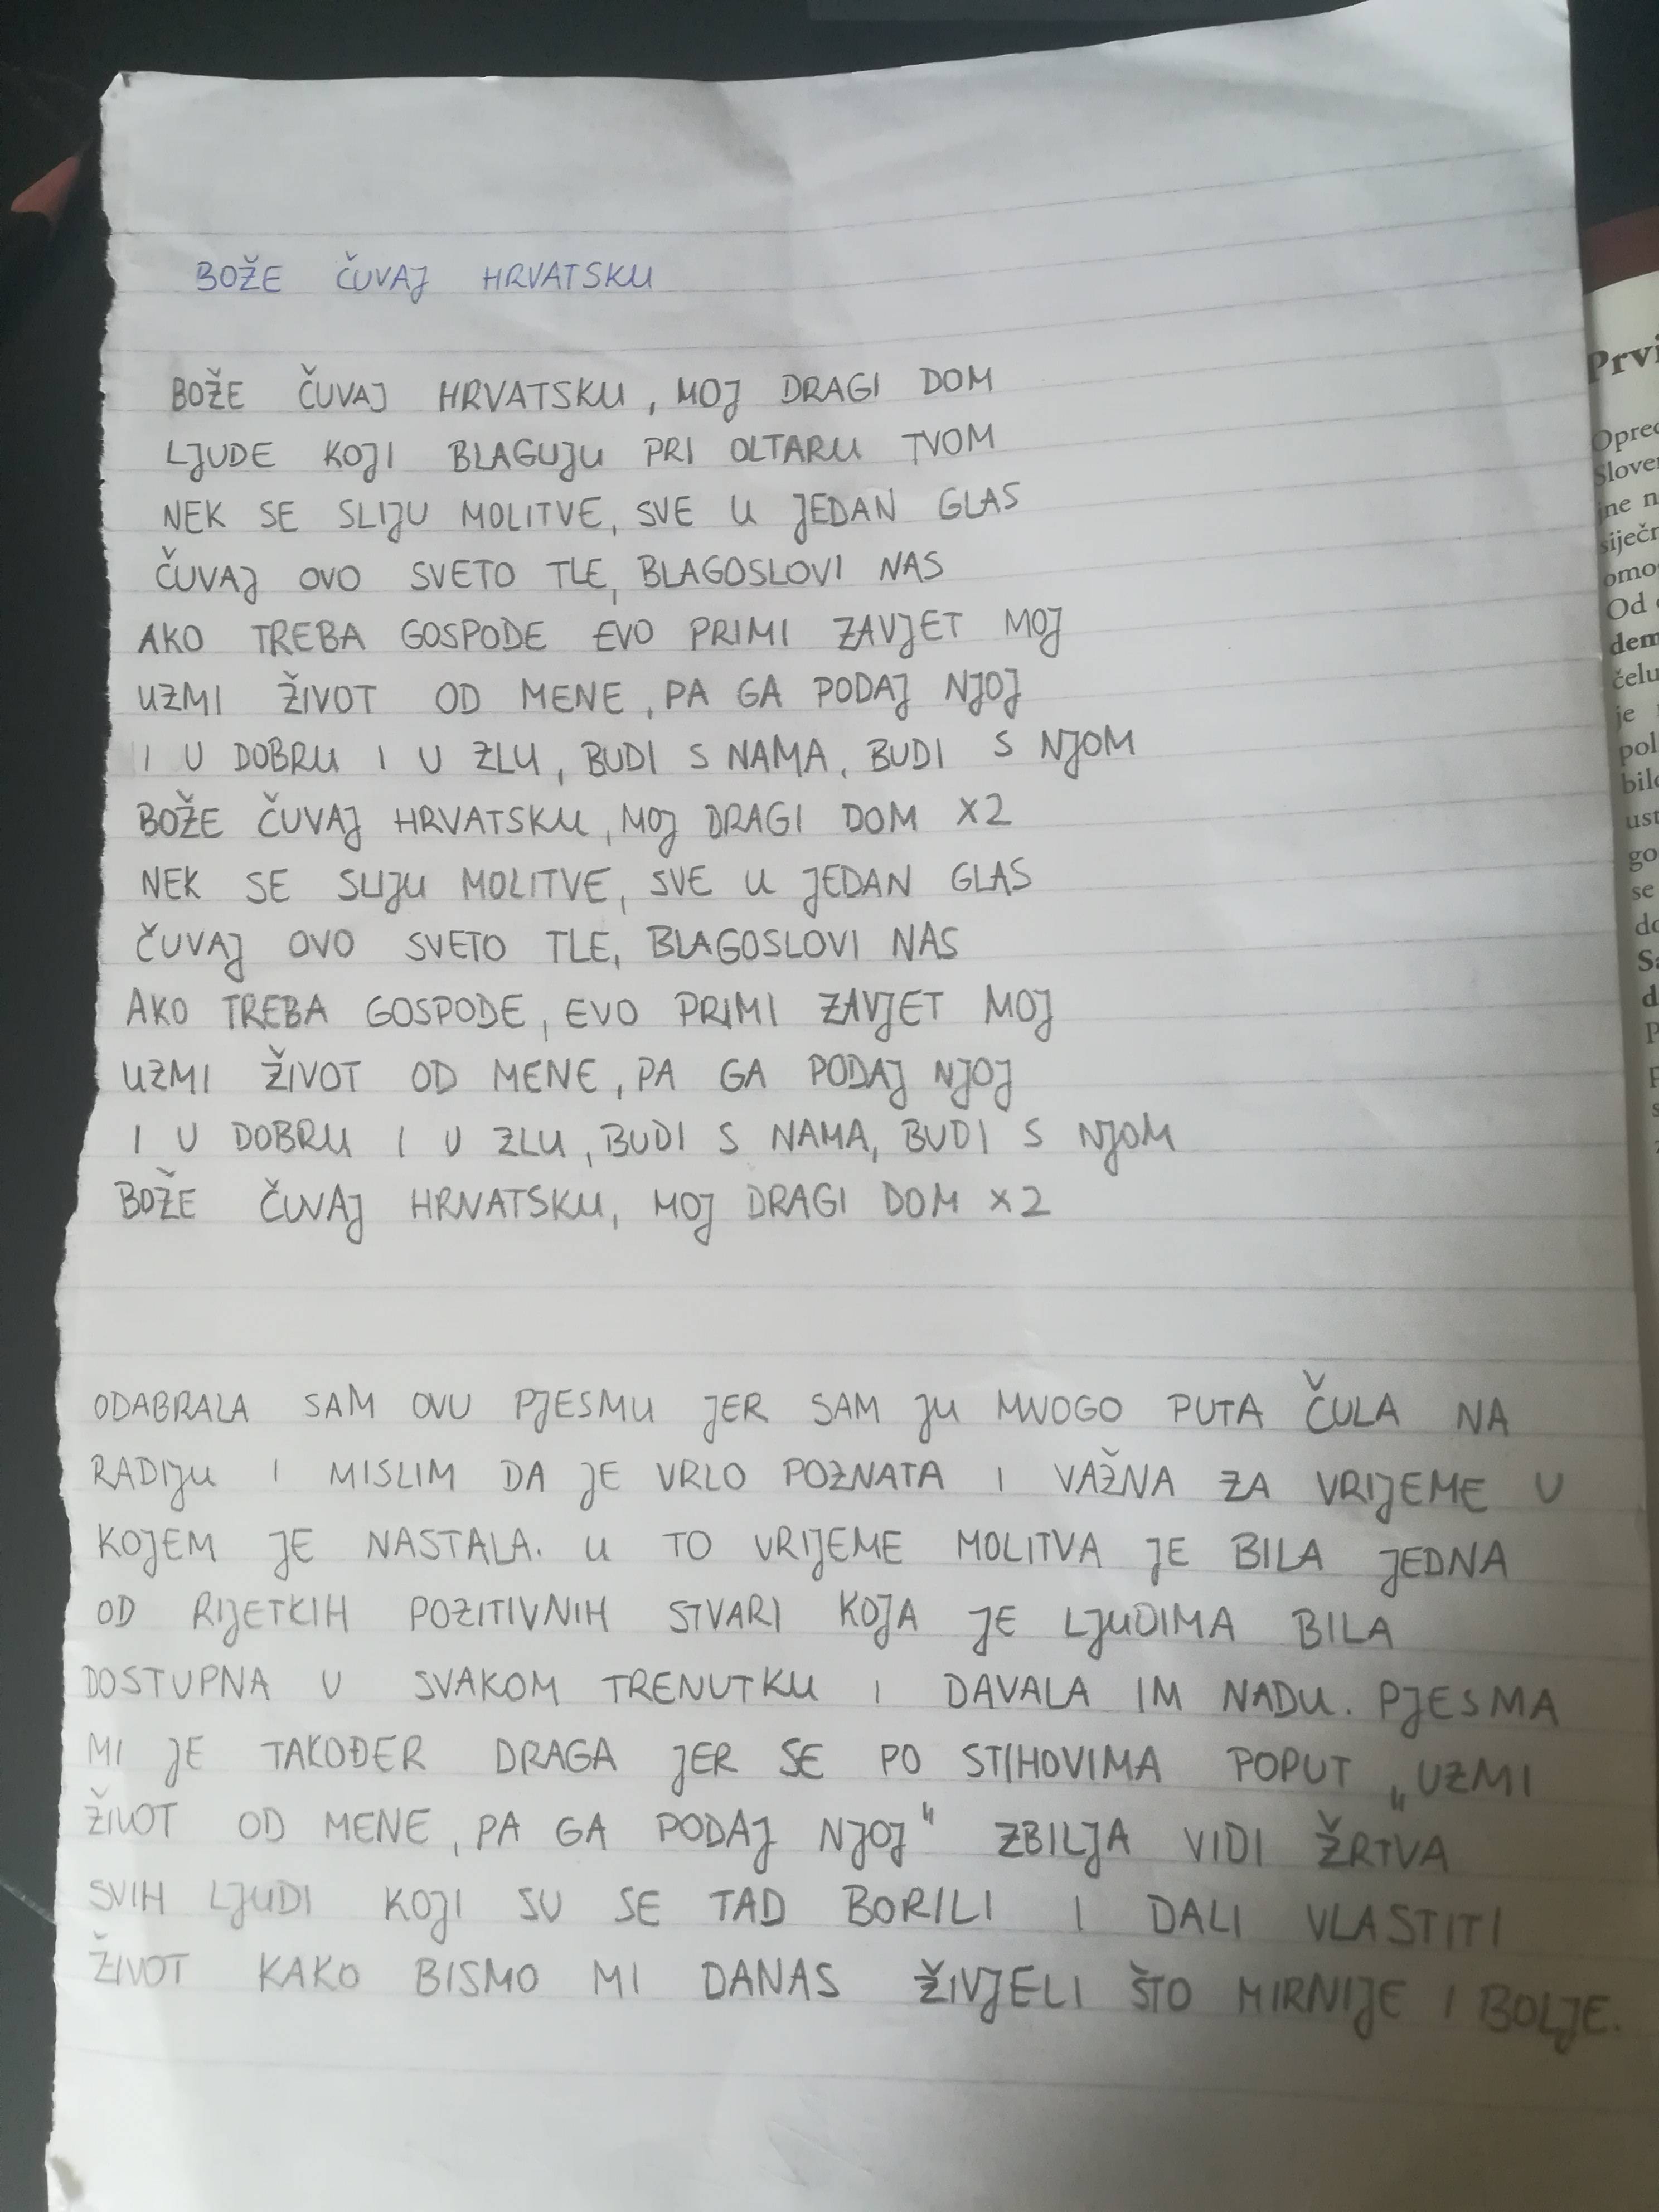 BOŽE ČUVAJ HRVATSKU
BOŽE ČUVAJ HRVATSKU, MOJ DRAGI DOM
LJUDE KOJI BLAGUJU PRI OLTARU TVOM
NEK SE SLIJU MOLITVE, SVE U JEDAN GLAS
ČUVAJ OVO SVETO TLE, BLAGOSLOVI NAS
AKO TREBA GOSPODE EVO PRIMI ZAVJET MOJ
UZMI ŽIVOT OD MENE, PA GA PODAJ NJOJ
I U DOBRU I U ZLU, BUDI S NAMA, BUDI S NJOM
BOŽE ČUVAJ HRVATSKU, MOJ DRAGI DOM X2
NEK SE SLIJU MOLITVE, SVE U JEDAN GLAS
ČUVAJ OVO SVETO TLE, BLAGOSLOVI NAS
AKO TREBA GOSPODE, EVO PRIMI ZAVJET MOJ
UZMI ŽIVOT OD MENE, PA GA PODAJ NJOJ
I U DOBRU I U ZLU, BUDI S NAMA, BUDI S NJOM
BOŽE ČUVAJ HRVATSKU, MOJ DRAGI DOM X2
ODABRALA SAM OVU PJESMU JER SAM JU MNOGO PUTA ČULA NA
RADIJU I MISLIM DA JE VRLO POZNATA I VAŽNA ZA VRIJEME U
KOJEM JE NASTALA. U TO VRIJEME MOLITVA JE BILA JEDNA
OD RIJETKIH POZITIVNIH STVARI KOJA JE LJUDIMA BILA
DOSTUPNA U SVAKOM TRENUTKU I DAVALA IM NADU. PJESMA
MI JE TAKOĐER DRAGA JER SE PO STIHOVIMA POPUT „UZMI
ŽIVOT OD MENE, PA GA PODAJ NJOJ" ZBILJA VIDI ŽRTVA
SVIH LJUDI KOJI SU SE TAD BORILI I DALI VLASTITI
ŽIVOT KAKO BISMO MI DANAS ŽIVJELI ŠTO MIRNIJE I BOLJE.
Prvi
Opred
Sloven
jne n
siječn
omo
Od
dem
čelu
je
pol
bilo
ust
go
se
do